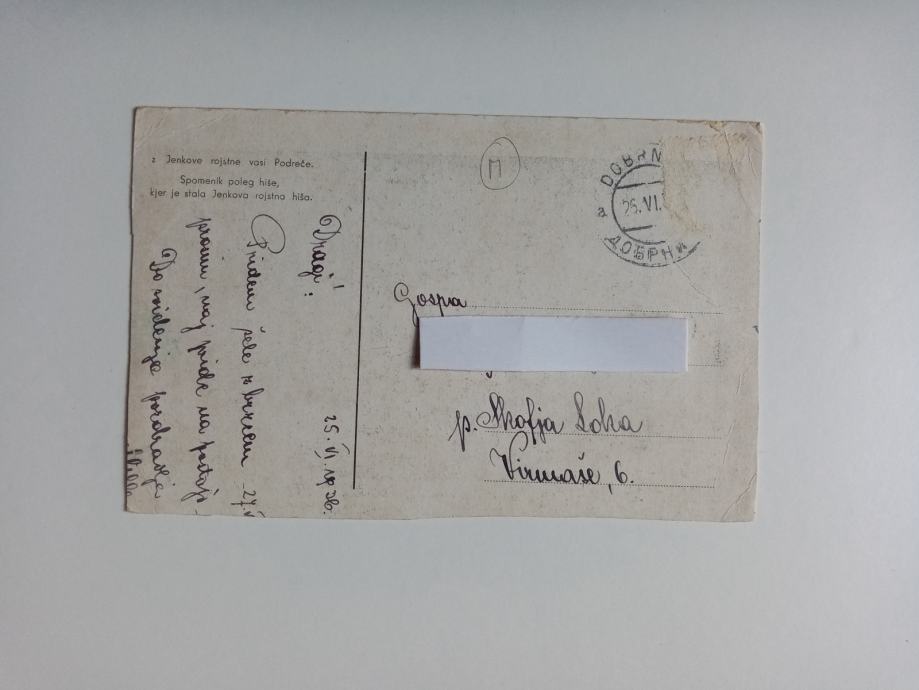 z Jenkove rojstne vasi Podreče.
Spomenik poleg hiše,
kjer je stala Jenkova rojstna hiša.
25. VI. 1936.
Dragi!
Pridem šele z brzcem 27.
prosim, naj pride na postajo
Do videnja pozdravlja
M
DOBRN
a
25.VI.
ДОБРН
Gospa
p. Škofja Loka
Virmaše, 6.